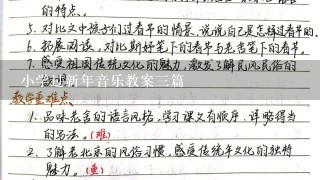 的特点。
5、对比文中孩子们过春节的情景,说说自己是怎样过春节的。
6、拓展阅读,对比斯妤笔下的春节与老舍笔下的春节。
7、感受祖国传统文化的魅力,激发了解民风民俗的
小学生新年音乐教案三篇
教学重难点
1、品味老舍的语言风格,学习课文有顺序、详略得当
的写法。(难)
2、了解老北京的风俗习惯,感受传统年文化的独特
魅力。(重)